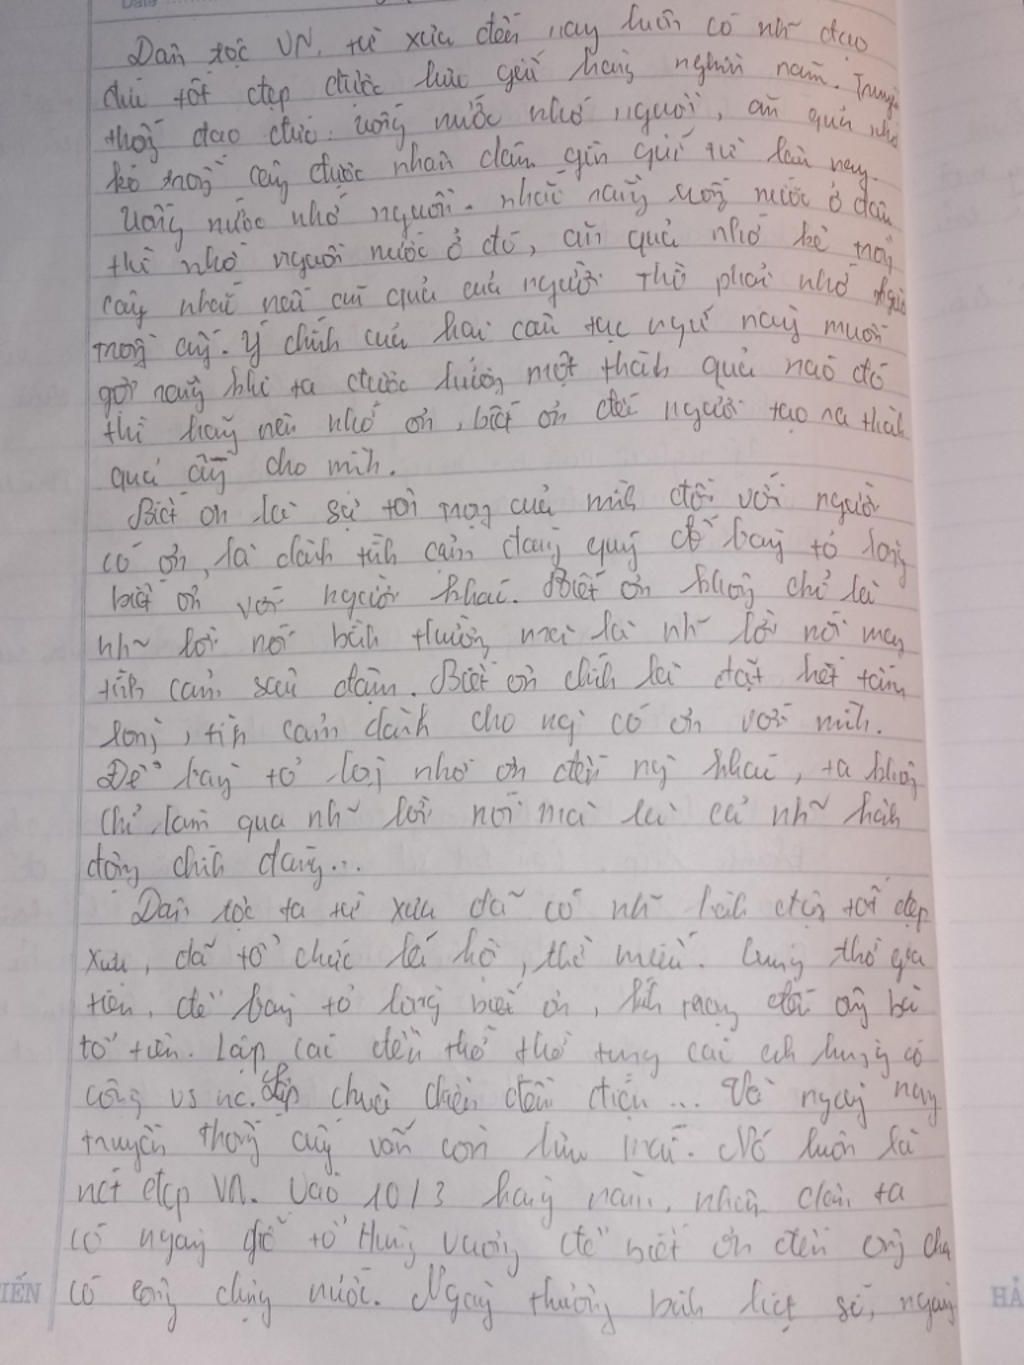 Dân tộc VN, từ xưa đến nay luôn có nh~ đạo
thống đạo đức: uống nước nhớ nguồn, ăn quả nhớ
kẻ trồng cây được nhân dân gìn giữ từ lâu nay.
Uống nước nhớ nguồn - nhắc rằng uống nước ở đâu
thì nhớ nguồn nước ở đó, ăn quả nhớ kẻ trồng
cây nhắc ăn quả của người thì phải nhớ
trồng ấy. Ý chính của hai câu tục ngữ này muốn
gợi rằng khi ta được hưởng một thành quả nào đó
thì hãy nên nhớ ơn, biết ơn đến người tạo ra thành
quả ấy cho mình.
Biết ơn là sự tôn trọng của mình đối với người
có ơn, là dành tình cảm đáng quý để bày tỏ lòng
biết ơn với người khác. Biết ơn không chỉ là
nh~ lời nói bình thường mà là nh~ lời nói mang
tình cảm sâu đậm. Biết ơn chính là đặt hết tấm
lòng, tình cảm dành cho ng có ơn với mình.
Để bày tỏ lòng nhớ ơn đến ng khác, ta không
chỉ làm qua nh~ lời nói mà là cả nh~ hành
động chính đáng...
Dân tộc ta từ xưa đã có nh~ tốt đẹp
xưa, đã tổ chức lễ hội, thờ miếu. Cúng thờ gia
tiên, để bày tỏ lòng biết ơn, kính trọng đối ông bà
tổ tiên. Lập các đền thờ thờ cúng các anh hùng có
công vs nc. chùa chiền đền điện... Về ngày nay
truyền thống ấy vẫn còn lưu mãi. Nó luôn là
nét đẹp VN. Vào 10/3 hằng năm, nhân dân ta
có ngày giỗ tổ Hùng Vương để biết ơn đến ông cha
có công dựng nước. Ngày thương binh liệt sĩ, ngày
IẾN
HẢ